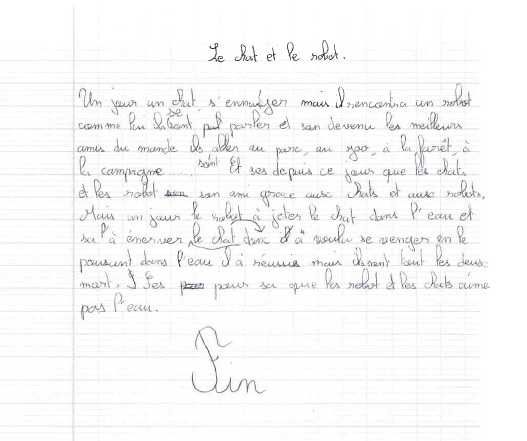 Le chat et le robot.
Un jour un chat s'ennuyer mais il rencontra un robot
comme lui ils se sont parler et son devenu les meilleurs
amis du monde ils aller au parc, au zoo, à la forêt, à
la campagne .... Et ses depuis ce jour que les chats
et les robot sont son ami grace ausc chats et ausc robots.
Mais un jour le robot à jeter le chat dans l'eau et
sa l'à énerver le chat donc il à voulu se venger en le
poussant dans l'eau il à réussie mais ils sont tout les deus
mort. Ses pour sa que les robot et les chats aime
pas l'eau.
Fin